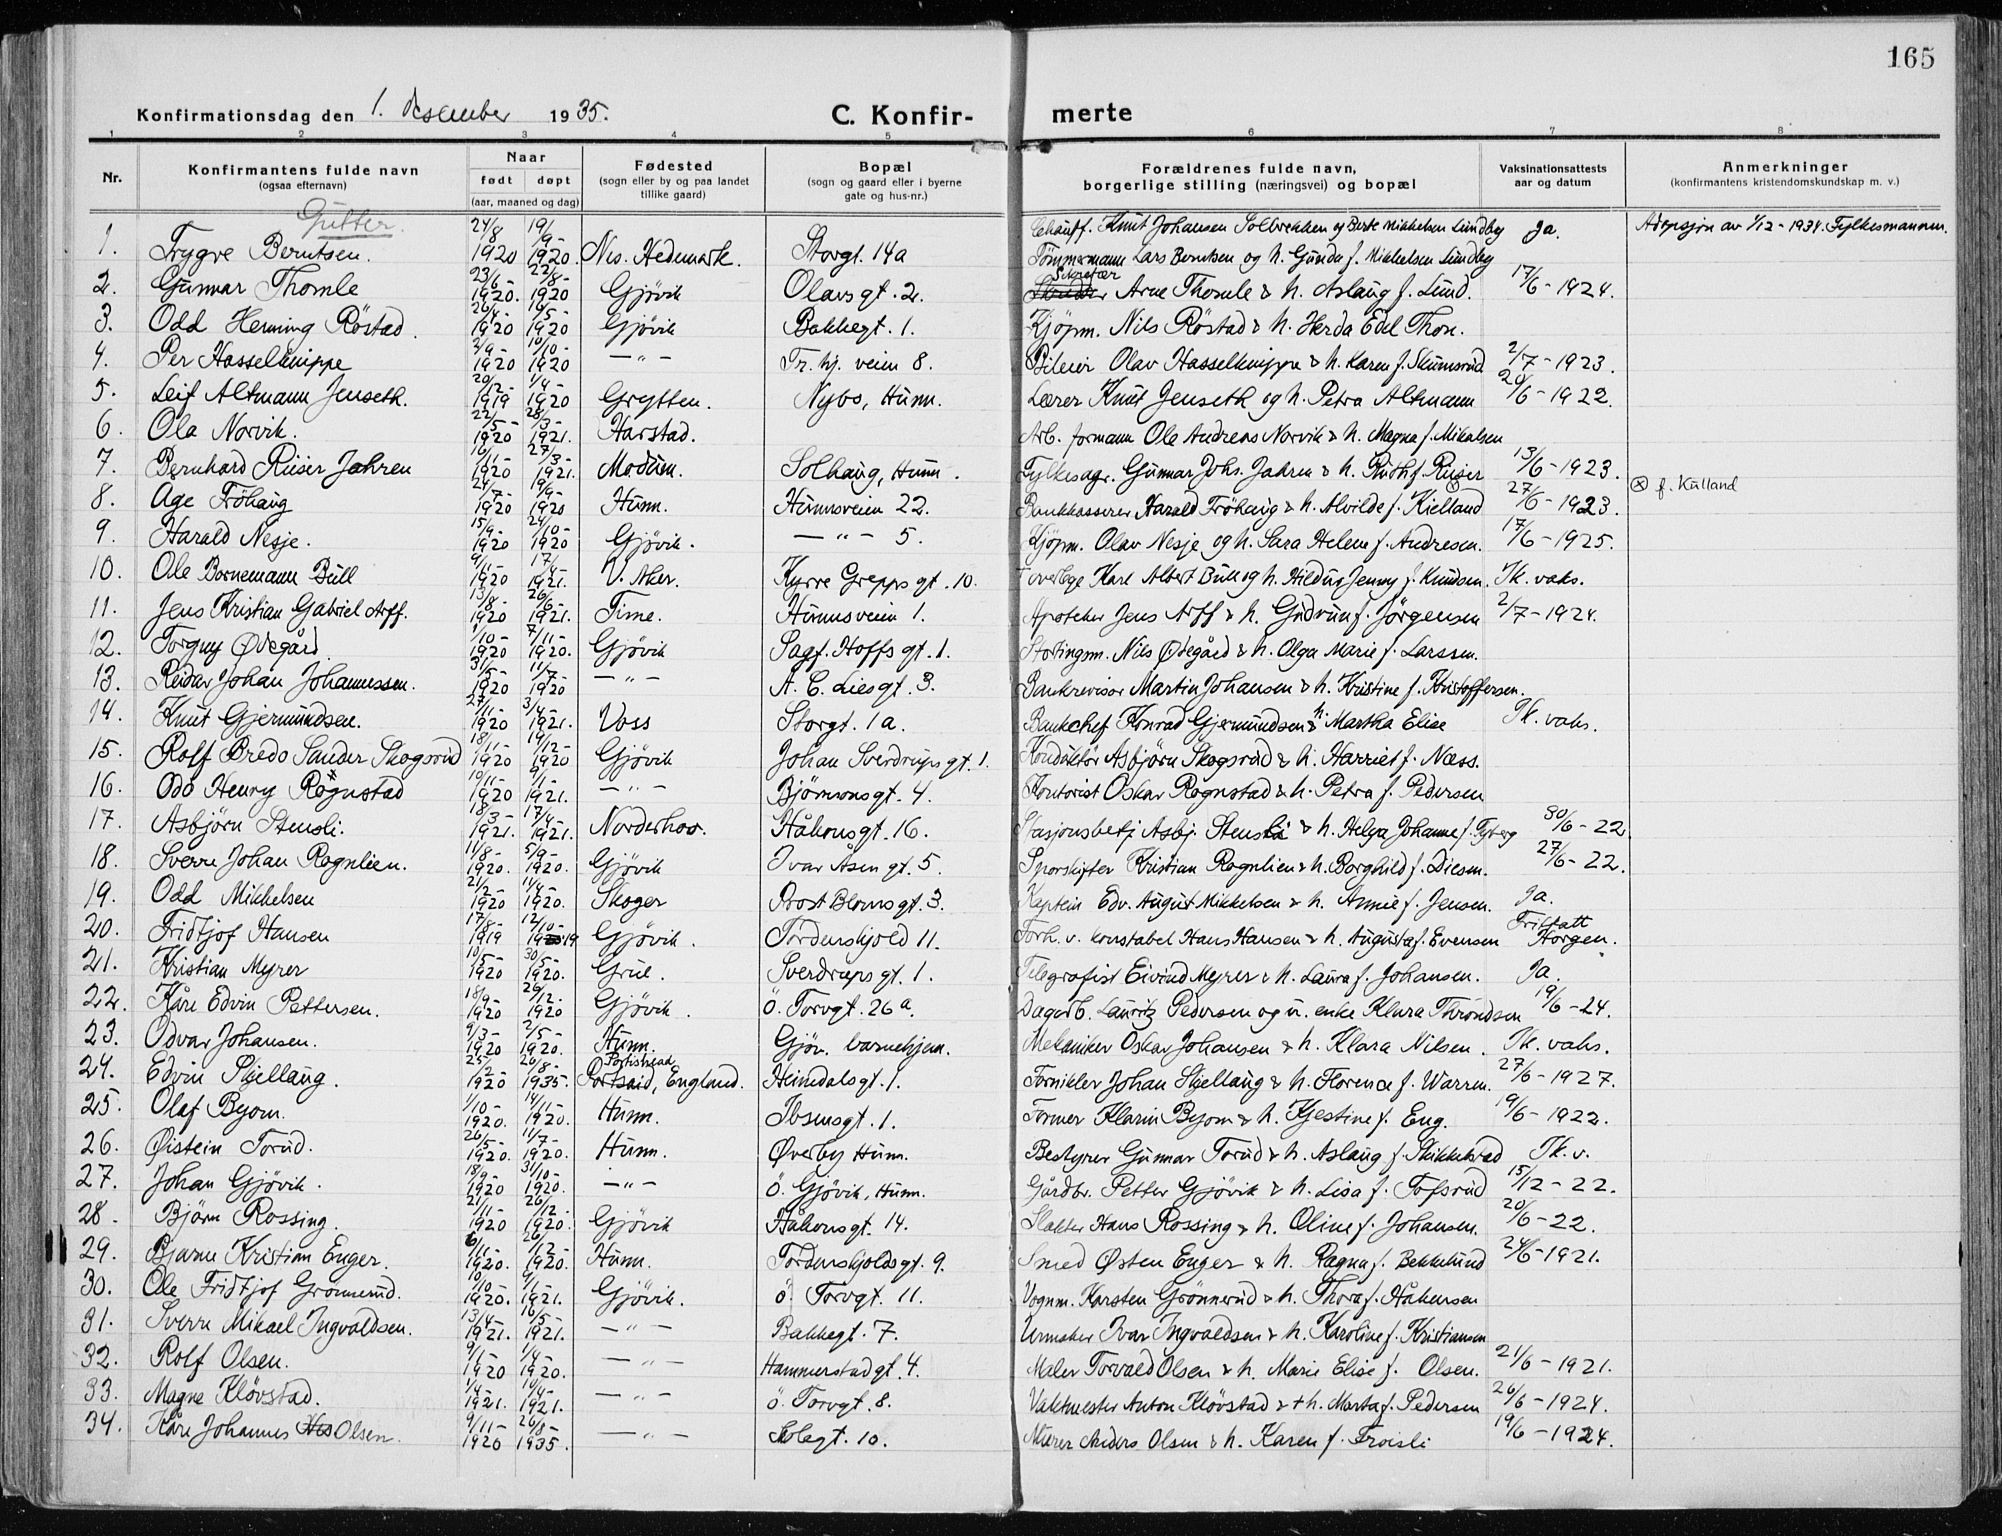 165
Konfirmationsdag den 1. Desember 1935.
C. Konfirmerte
1 2 3 4 5 6 7 8
Nr. | Konfirmantens fulde navn (ogsaa efternavn) | Naar født døpt (aar, maaned og dag) | Fødested (sogn eller by og paa landet tillike gaard) | Bopæl (sogn og gaard eller i byerne gate og hus-nr.) | Forældrenes fulde navn, borgerlige stilling (næringsvei) og bopæl | Vaksinationsattests aar og datum | Anmerkninger (konfirmantens kristendomskundskap m. v.)
Gutter.
1. Trygve Berntsen. 24/8 1920 19/9- 1920. Nes. Hedemark. Storgt. 14a Chauff. Knut Johansen Solbrekken og Berte Mikkelsen Lundby Ja. Adopsjon av 1/12-1934. Fylkesmannen.
Tömmermann Lars Berntsen og h. Gunda f. Mikkelsen Lundby
2. Gunnar Thomle 23/6- 1920. 22/8- 1920 Gjövik Olavsgt. 2. Sekretær Arne Thomle & h. Aslaug f. Lund. 17/6-1924.
3. Odd Henning Röstad. 1920 1920 Gjövik Bakkegt. 1. Kjöpm. Nils Röstad & h. Herda Edel Thon.
4. Per Hasselknippe 2/9- 1920 10/10- 1920 -"- Tr. hj. veien 8. Bileier Olav Hasselknippe & h. Karen f. Skumsrud 2/7-1923.
5. Leif Altmann Jenseth. 20/12- 1919 1/4- 1920 Grytten. Nybo, Hunn. Lærer Knut Jenseth og h. Petra Altmann 20/6-1922.
6. Ola Norvik. 22/5- 1920 28/3- 1921. Harstad. Arb. formann Ole Andreas Norvik & h. Magna f. Mikalsen
7. Bernhard Ruser Jahren 16/11- 1920 27/3- 1921. Modum. Solhaug, Hunn. Fylkesagr. Gunnar Johs. Jahren & h. Ruth f. Ruser 13/6-1923.
8. Age Fröhaug 24/7- 1920 19/9- 1920 Hunn. Hunnsveien 22. Bankkasserer Harald Fröhaug & h. Alvilde f. Kielland 27/6-1923. ⊗ f. Kulland
9. Harald Nesje. 15/9- 1920 24/10- 1920 Gjövik. -"- 5. Kjöpm. Olav Nesje og h. Sara Helene f. Andresen. 17/6-1925.
10. Ole Bornemann Bull 9/11- 1920 17/4- 1921. V. Aker. Kyrre Grepps gt. 10. Overlege Karl Albert Bull og h. Hildur Jenny f. Knudsen. Ik. vaks.
11. Jens Kristian Gabriel Arff. 13/8- 1920 26/6- 1921. Time. Hunnsveien 1. Apoteker Jens Arff & h. Gudrun f. Jörgensen 2/7-1924.
12. Torguy Ødegård 1/10- 1920 7/11- 1920. Gjövik Sagf. Hoffs gt. 1. Stortingsm. Nils Ødegård & h. Olga Marie f. Larssen.
13. Reidar Johan Johannessen. 31/5- 1920 11/7- 1920 -"- A. C. Liesgt. 3. Bankrevisor Martin Johansen & h. Kristine f. Kristoffersen.
14. Knut Gjermundsen. 27/11- 1920 3/4- 1921. Voss Storgt. 1a. Bankchef Konrad Gjermundsen & h. Martha Elise Ik. vaks.
15. Rolf Bredo Sander Skogsrud 18/11- 1920 19/12- 1920 Gjövik Johan Sverdrups gt. 1. Konduktör Asbjörn Skogsrud & h. Harriet f. Næss.
16. Odd Henry Rognstad 10/11- 1920 2/1- 1921. -"- Björnsonsgt. 4. Kontorist Oskar Rognstad & h. Petra f. Pedersen
17. Asbjörn Stensli. 18/3- 1921. 17/4- 1921. Norderhov. Håkonsgt. 16. Stasjonsbetj Asbj. Stensli & h. Helga Johanne f. Fyberg 30/6-22
18. Sverre Johan Rognlien. 11/8- 1920. 5/9- 1920. Gjövik Ivar Åsen gt. 5. Sporskifter Kristian Rognlien & h. Borghild f. Diesen. 27/6-22.
19. Odd Mikkelsen 21/2- 1920 11/4- 1920. Skoger Prost Blomsgt. 3. Kaptein Edv. August Mikkelsen & h. Annie f. Jensen. Ja.
20. Fridtjof Hansen 17/8- 1919 12/10- 1919 Gjövik. Tordenskjold 11. Forh. v. konstabel Hans Hansen & h. Augusta f. Evensen Fritatt Horgen.
21. Kristian Myrer 10/5- 1920 30/5- 1920. Grue. Sverdrupsgt. 1. Telegrafist Eivind Myrer & h. Laura f. Johansen. Ja.
22. Kåre Edvin Pettersen. 18/9- 1920 26/12- 1920 Gjövik. ö. Torvgt. 26a. Dagarb. Lauritz Pedersen og u. enke Klara Throndsen 19/6-24.
23. Odvar Johansen. 9/3- 1920 2/5- 1920. Hunn. Gjöv. barnehjem. Mekaniker Oskar Johansen & h. Klara Nilsen. Ik. vaks.
24. Edvin Skjellaug. 25/2- 1920 26/8- 1935. Portsaid, England. Heimdalsgt. 1. Fornikler Johan Skjellaug & h. Florence f. Warren. 27/6-1927.
25. Olaf Byom. 1/10- 1920. 14/11- 1920. Hunn. Ibsensgt. 1. Former Klarin Byom & h. Kjestine f. Eng. 19/6-1922.
26. Øistein Torud. 26/5- 1920. 11/7- 1920. Hunn. Øverby Hunn. Bestyrer Gunnar Torud & h. Aslaug f. Skikkelstad Ik. v.
27. Johan Gjövik. 18/9- 1920 31/10- 1920. -"- ö. Gjövik, Hunn. Gårdbr. Petter Gjövik & h. Lisa f. Tofsrud 15/12-22.
28. Björn Rossing. 21/11- 1920 26/12- 1920. Gjövik Håkonsgt. 14. Slakter Hans Rossing & h. Oline f. Johansen. 20/6-22.
29. Bjarne Kristian Enger. 6/11- 1920. 26/12- 1920. Hunn. Tordenskjoldsgt. 9. Smed Østen Enger & h. Ragna f. Bekkelund 24/6-1921.
30. Ole Fridtjof Grönnerud. 10/10- 1920. 9/1- 1921. Gjövik. ö. Torvgt. 11. Vognm. Karsten Grönnerud & h. Thora f. Håkensen
31. Sverre Mikael Ingvaldsen. 13/4- 1921. 16/5- 1921. -"- Bakkegt. 7. Urmaker Ivar Ingvaldsen & h. Karoline f. Kristiansen
32. Rolf Olsen. 9/1- 1920 1/4- 1920. -"- Hammerstadgt. 4. Maler Torvald Olsen & h. Marie Elise f. Olsen. 21/6-1921.
33. Magne Klövstad. 1/4- 1921. 1921. -"- ö. Torvgt. 8. Vaktmester Anton Klövstad & +h. Marta f. Pedersen 26/6-1924.
34. Kåre Johannes Olsen. 9/11- 1920 26/8- 1935. -"- Solegt. 10. Murer Anders Olsen & h. Karen f. Froisli 19/6-1924.